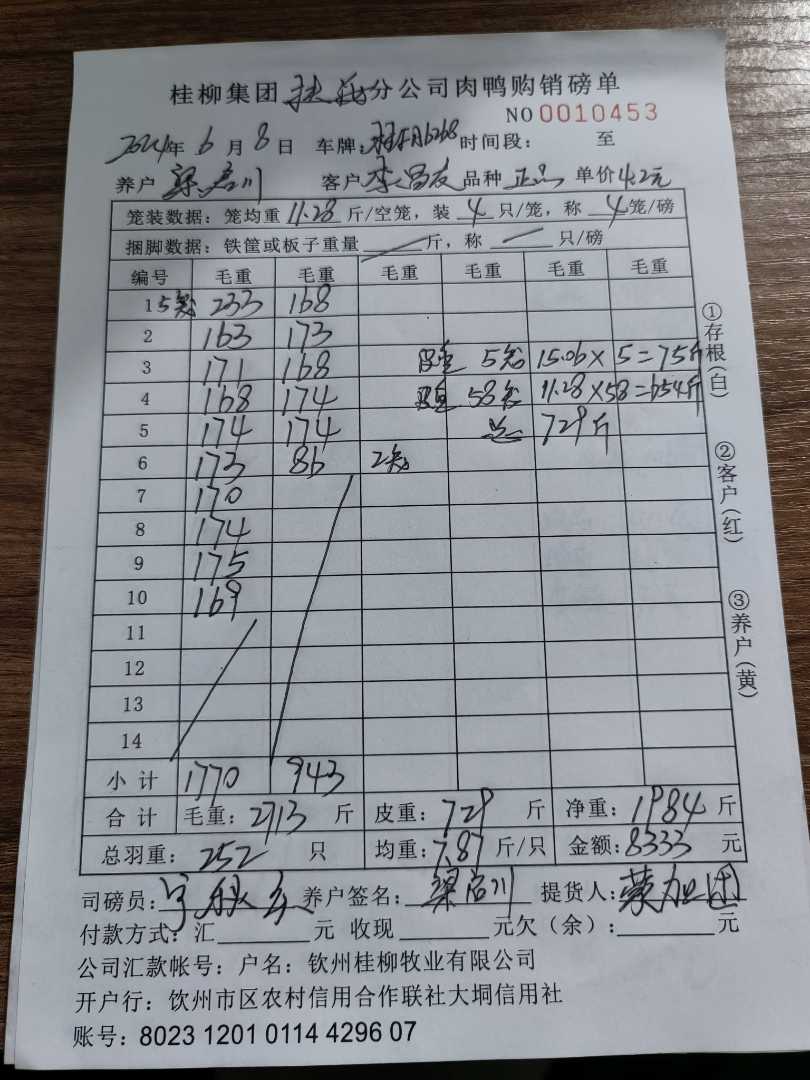 桂柳集团扶绥分公司肉鸭购销磅单
NO 0010453
2024年6月8日 车牌: 6268 时间段: 至
养户 梁启川 客户 李昌友 品种 正品 单价4.2元
笼装数据: 笼均重 11.28 斤/空笼, 装 4 只/笼, 称 4 笼/磅
捆脚数据: 铁筐或板子重量 斤, 称 只/磅
编号 毛重 毛重 毛重 毛重 毛重 毛重
1 5笼 233 168
2 163 173
3 171 168 皮重 5笼 15.06×5=75斤
4 168 174 皮重 58笼 11.28×58=654斤
5 174 174 总 729斤
6 173 86 2笼
7 170
8 174
9 175
10 169
11
12
13
14
小计 1770 943
合计 毛重: 2713 斤 皮重: 729 斤 净重: 1984 斤
总羽重: 252 只 均重: 7.87 斤/只 金额: 8333 元
司磅员: 养户签名: 梁启川 提货人:
付款方式: 汇 元 收现 元欠(余): 元
公司汇款帐号: 户名: 钦州桂柳牧业有限公司
开户行: 饮州市区农村信用合作联社大垌信用社
账号: 8023 1201 0114 4296 07
①存根(白)
②客户(红)
③养户(黄)